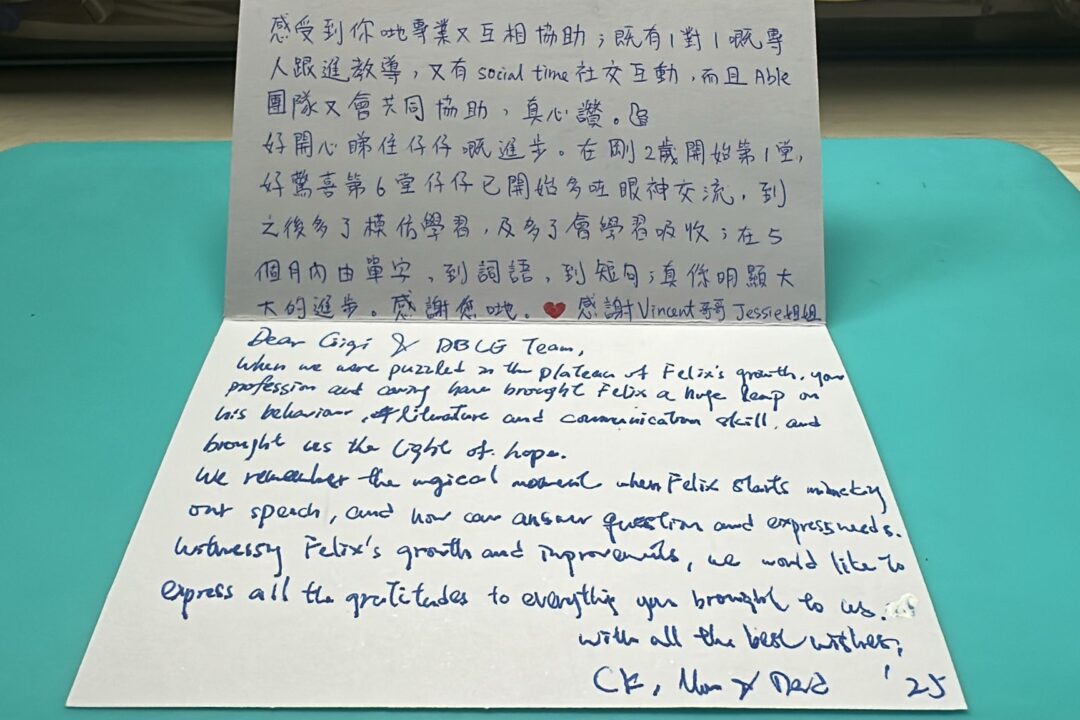 感受到你哋專業又互相協助；既有1對1嘅專
人跟進教導，又有social time社交互動，而且Able
團隊又會共同協助，真心讚。
好開心睇住仔仔嘅進步。在剛2歲開始第1堂，
好驚喜第6堂仔仔已開始多咗眼神交流，到
之後多了模仿學習，及多了會學習吸收；在5
個月內由單字，到詞語，到短句；真係明顯大
大的進步。感謝您哋。❤ 感謝Vincent哥哥 Jessie姐姐
Dear Gigi & ABLE Team,
When we were puzzled in the plateau of Felix's growth, your
profession and caring have brought Felix a huge leap on
his behaviour, literature and communication skill, and
brought us the light of hope.
We remember the magical moment when Felix starts mimicking
our speech, and now can answer question and express needs.
Witnessing Felix's growth and improvements, we would like to
express all the gratitudes to everything you brought to us.
With all the best wishes,
CK, Mom & Dad '25